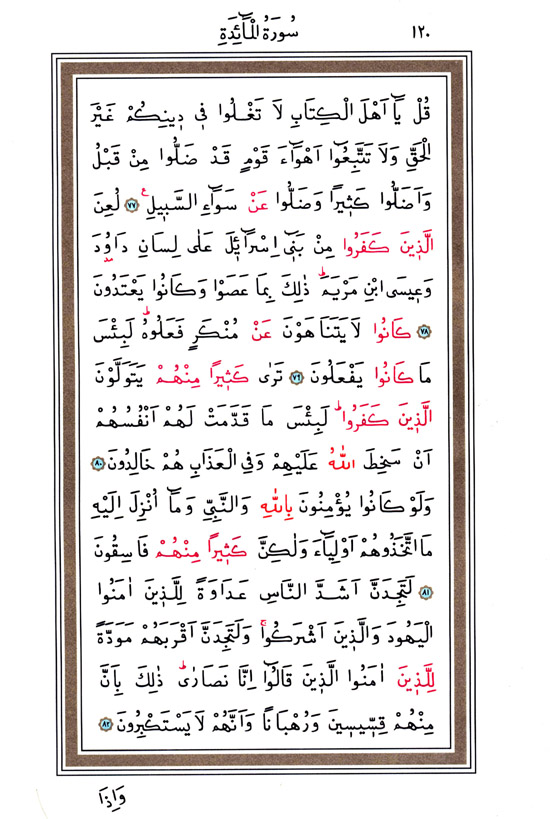 سُورَةُ الْمَآئِدَةِ ١٢٠
قُلْ يَٓا اَهْلَ الْكِتَابِ لَا تَغْلُوا فٖي دٖينِكُمْ غَيْرَ
الْحَقِّ وَلَا تَتَّبِعُٓوا اَهْوَٓاءَ قَوْمٍ قَدْ ضَلُّوا مِنْ قَبْلُ
وَاَضَلُّوا كَثٖيرًا وَضَلُّوا عَنْ سَوَٓاءِ السَّبٖيلِ ۟ ﴿٧٧﴾ لُعِنَ
الَّذٖينَ كَفَرُوا مِنْ بَنٖٓي اِسْرَٓائٖلَ عَلٰى لِسَانِ دَاوُ۫دَ
وَعٖيسَى ابْنِ مَرْيَمَؕ ذٰلِكَ بِمَا عَصَوْا وَكَانُوا يَعْتَدُونَ
﴿٧٨﴾ كَانُوا لَا يَتَنَاهَوْنَ عَنْ مُنْكَرٍ فَعَلُوهُؕ لَبِئْسَ
مَا كَانُوا يَفْعَلُونَ ﴿٧٩﴾ تَرٰى كَثٖيرًا مِنْهُمْ يَتَوَلَّوْنَ
الَّذٖينَ كَفَرُواؕ لَبِئْسَ مَا قَدَّمَتْ لَهُمْ اَنْفُسُهُمْ
اَنْ سَخِطَ اللّٰهُ عَلَيْهِمْ وَفِي الْعَذَابِ هُمْ خَالِدُونَ ﴿٨٠﴾
وَلَوْ كَانُوا يُؤْمِنُونَ بِاللّٰهِ وَالنَّبِيِّ وَمَٓا اُنْزِلَ اِلَيْهِ
مَا اتَّخَذُوهُمْ اَوْلِيَٓاءَ وَلٰكِنَّ كَثٖيرًا مِنْهُمْ فَاسِقُونَ
﴿٨١﴾ لَتَجِدَنَّ اَشَدَّ النَّاسِ عَدَاوَةً لِلَّذٖينَ اٰمَنُوا
الْيَهُودَ وَالَّذٖينَ اَشْرَكُواۚ وَلَتَجِدَنَّ اَقْرَبَهُمْ مَوَدَّةً
لِلَّذٖينَ اٰمَنُوا الَّذٖينَ قَالُٓوا اِنَّا نَصَارٰىؕ ذٰلِكَ بِاَنَّ
مِنْهُمْ قِسّٖيسٖينَ وَرُهْبَانًا وَاَنَّهُمْ لَا يَسْتَكْبِرُونَ ﴿٨٢﴾
وَاِذَا